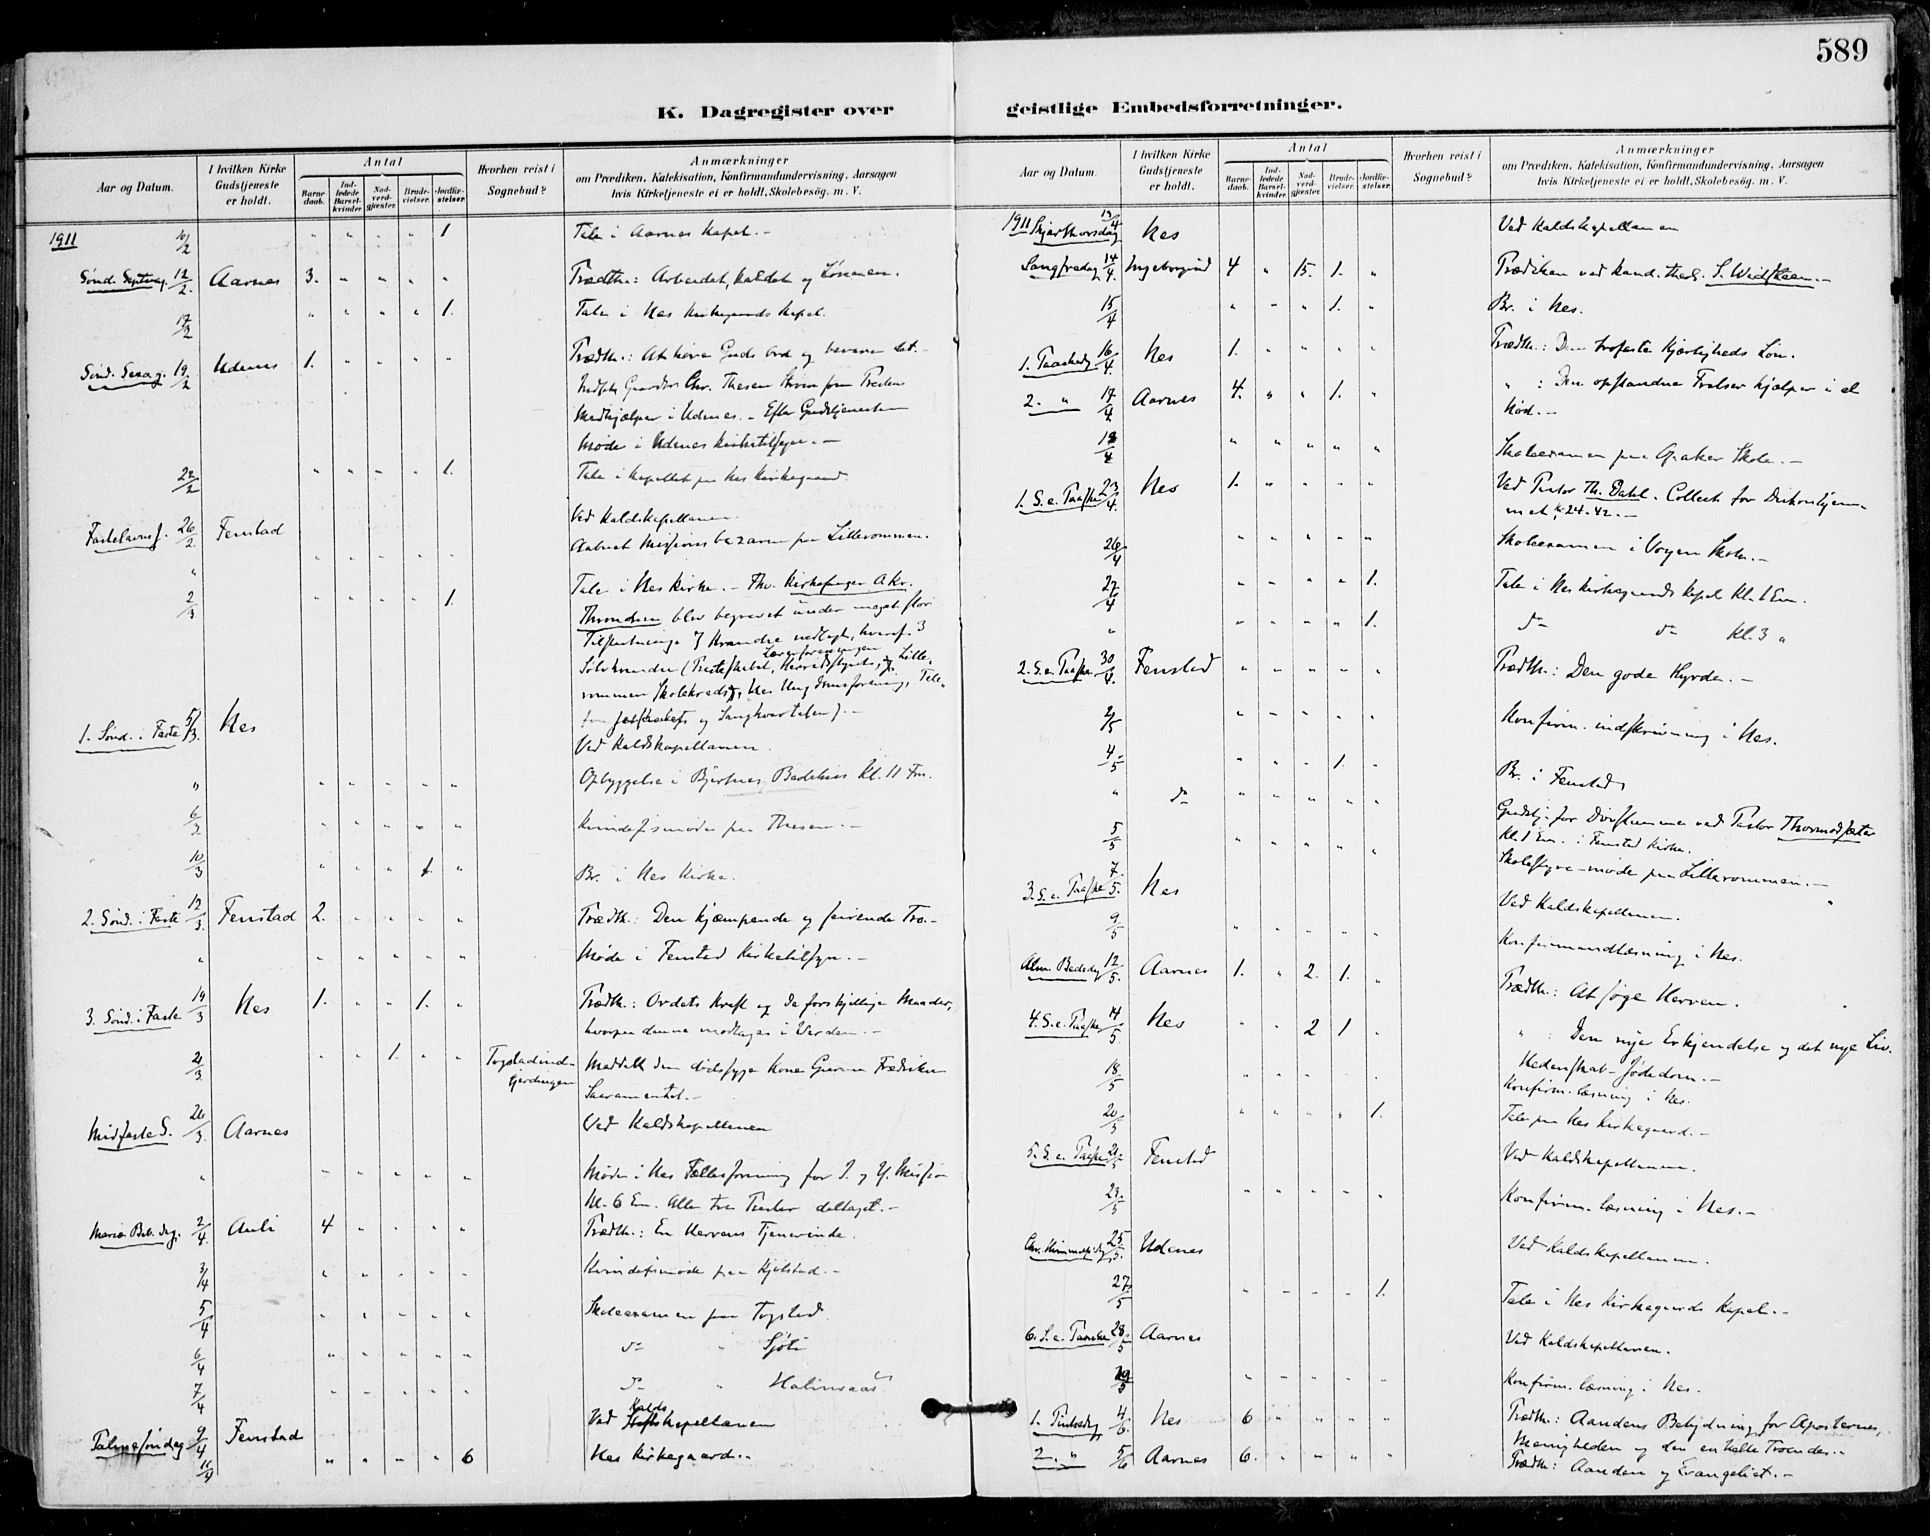 589
K. Dagregister over geistlige Embedsforretninger.
Aar og Datum. I hvilken Kirke Gudstjeneste er holdt. Antal Barnedaab. Indledede Barselkvinder. Nadverdgjæster. Brudevielser. Jordfæstelser. Hvorhen reist i Sognebud? Anmærkninger om Prædiken, Katekisation, Konfirmandundervisning, Aarsagen hvis Kirketjeneste ei er holdt, Skolebesög. m. V.
1911 10/2 " " " " 1 Tale i Aarnes Kapel. –
Sønd. Septuag. 12/2. Aarnes 3. " " " " Prædtk.: Arbeidet, Kaldet og Lønnen.
17/2 " " " " 1. Tale i Nes Kirkegaards Kapel.
Sønd. Sexag. 19/2 Udenes 1. " " " " Prædtk.: At høre Guds Ord og bevare det. –
Chr. Thesen
Medhjælper i Udenes. – Efter Gudstjenesten
Møde i Udenes Kirketilsyn. –
22/2 " " " " 1. Tale i Kapellet paa Nes Kirkegaard.
Fastelavns s. 26/2 Fenstad Ved Kaldskapellanen.
" " " " " " Aabnet Missionsbazaren paa Lillerommen.
2/3 " " " " 1. Tale i Nes Kirke. – Fhv. Kirkesanger A. Kr.
Throndsen blev begravet under meget stor
Tilslutning. 7 Krandse nedlagt, hvoraf 3
Lærerforeningen
Sølvkrandse (Præsteskabet, Herredsstyret, og Lille-
rommen Skolekreds, Nes Ungdomsforening, Tele-
fonselskabet og Sangkvartetten). –
1. Sønd. i Faste 5/3. Nes Ved Kaldskapellanen.
" " " " " " Opbyggelse i Bjertnes Bedehus Kl. 11 Fm.
6/3 " " " " " Kvindefsmøde paa Thesen. –
10/3 " " " 1. " Br. i Nes Kirke.
2. Sønd. i Faste 12/3. Fenstad 2. " " " " Prædtk.: Den kjæmpende og seirende Tro. –
" " " " " " Møde i Fenstad Kirketilsyn. –
3. Sønd. i Faste 19/3 Nes 1. " " 1. " Prædtk.: Ordets Kraft og de forskjellige Maader,
hvorpaa denne modtages i Verden. –
21/3 " " 1. " " Togstadind- Gjerdingen Meddelt den dødssyge Kone
Sacramentet. –
Midfaste S. 26/3. Aarnes Ved Kaldskapellanen
" " " " " " Møde i Nes Fællesforening for I. og Y. Mission
Kl. 6 Em. Alle tre Prester deltaget. –
Mariæ Beb. dag. 2/4. Auli 4 " " " " Prædtk.: En Herrens Tjenerinde.
3/4 " " " " " Kvindefsmøde paa Kjølstad. –
5/4 " " " " " Skoleexamen paa Togstad.
6/4 " " " " " do " Sjøli
7/4 " " " " " do "
Palmesøndag 9/4 Fenstad Ved Kaldskapellanen
11/4 " " " " 6 Nes Kirkegaard. –
Aar og Datum. I hvilken Kirke Gudstjeneste er holdt. Antal Barnedaab. Indledede Barselkvinder. Nadverdgjæster. Brudevielser. Jordfæstelser. Hvorhen reist i Sognebud? Anmærkninger om Prædiken, Katekisation, Konfirmandundervisning, Aarsagen hvis Kirketjeneste ei er holdt, Skolebesög. m. V.
1911 Skjærthorsdag 13/4 Nes Ved Kaldskapellanen
Langfredag 14/4. Ingeborgrud 4 " 15. 1. " Prædiken ved kand. theol. S. Widsteen. –
15/4 " " " 1. " Br. i Nes.
1. Paaskedg 16/4. Nes 1. " " " " Prædtk.: Den trofaste Kjærligheds Løn.
2. " 17/4 Aarnes 4. " " 1. " " : Den opstandne Frelser hjælper i al
Nød. –
18/4 " " " " " Skoleexamen paa Skole. –
1. S. e. Paaske 23/4. Nes 1. " " " " Ved Pastor Th. Dahl. Collect for Diakonhjem-
met, kr. 24.42. –
26/4 " " " " " Skoleexamen i Vorgen Skole. –
27/4 " " " " 1. Tale i Nes Kirkegaards Kapel Kl. 1 Em.
" " " " " 1. do do Kl. 3 "
2. S. e. Paaske 30/4. Fenstad " " " " " Prædtk.: Den gode Hyrde. –
2/5 " " " " " Konfirm. indskrivning i Nes.
4/5 " " " 1. " Br. i Fenstad
" do " " " " " Gudstj. for Døvstumme ved Pastor Thormodsæter
Kl. 1 Em. i Fenstad Kirke.
5/5 " " " " " Skolestyre-møde paa Lillerommen. –
3. S. e. Paaske 7/5. Nes Ved Kaldskapellanen.
9/5 " " " " " Konfirmandlæsning i Nes.
Alm. Bededag 12/5. Aarnes 1. " 2. 1. " Prædtk.: At søge Herren.
4. S. e. Paaske 14/5. Nes " " 2 1 " " : Den nye Erkjendelse og det nye Liv.
Hedenskab – Jødedom. –
18/5 " " " " " Konfirm. læsning i Nes.
20/5 " " " " 1. Tale paa Nes Kirkegaard. –
5. S. e. Paaske 21/5 Fenstad Ved Kaldskapellanen.
23/5 " " " " " Konfirm. læsning i Nes. –
Chr. Himmelfdg 25/5. Udenes Ved Kaldskapellanen.
27/5 " " " " 1. Tale i Nes Kirkegaards Kapel. –
6. S. e. Paaske 28/5 Aarnes Ved Kaldskapellanen.
29/5 " " " " " Konfirm. læsning i Nes.
1. Pintsedg 4/6 Nes 6 " " " " Prædtk.: Aandens Betydning for Apostlerne,
Menigheden og den enkelte Troende. –
2. " 5/6 Aarnes 6. " " " " Prædtk.: Aanden og Evangeliet. –